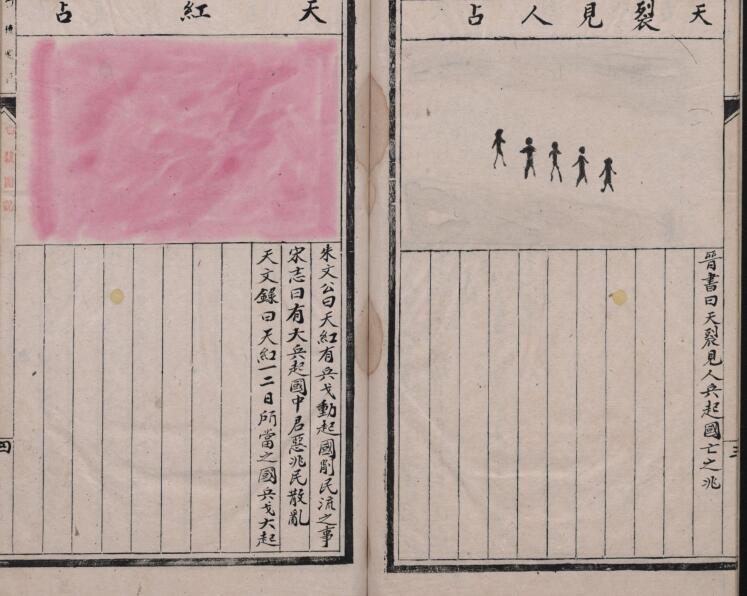 天裂見人占
晉書曰天裂見人兵起國亡之兆
三
天紅占
朱文公曰天紅有兵戈動起國削民流之事
宋志曰有大兵起國中君惡兆民散亂
天文錄曰天紅一二日所當之國兵戈大起
四